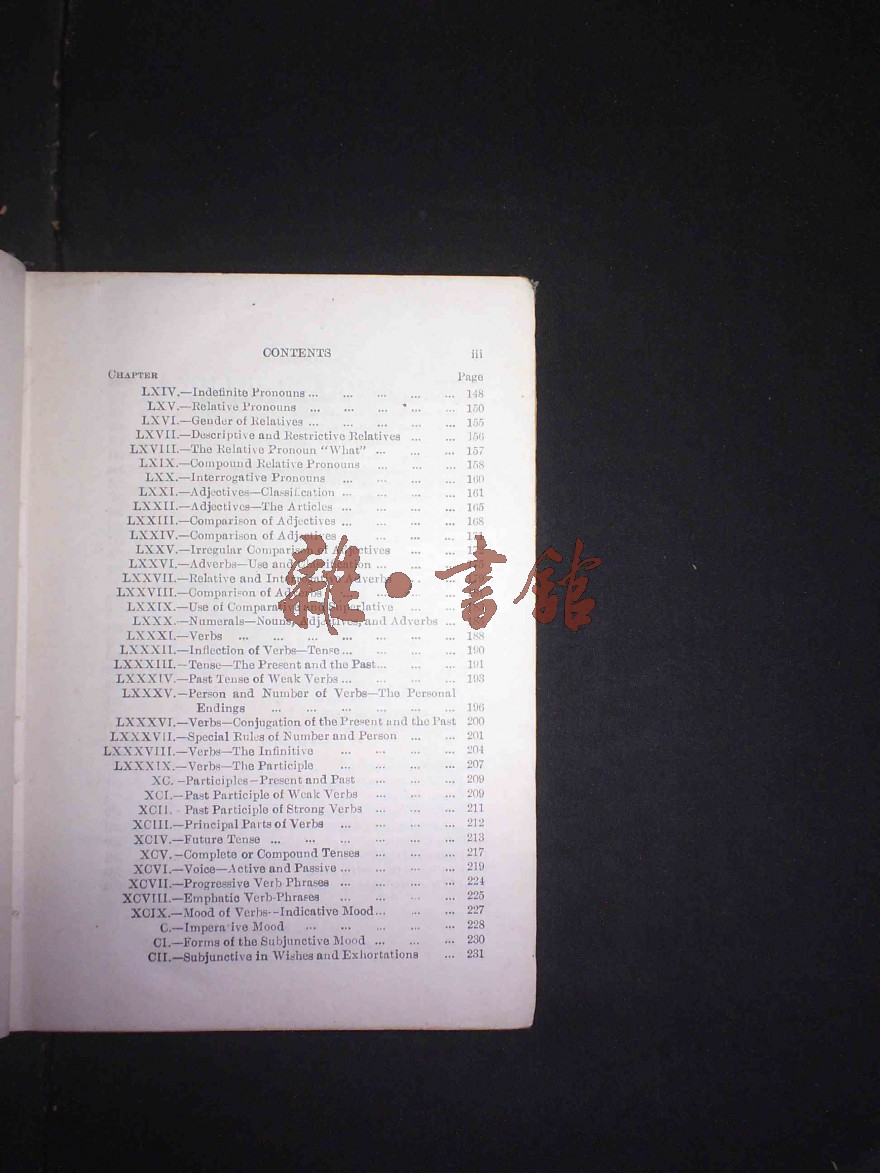 CONTENTS iii
CHAPTER Page
LXIV.—Indefinite Pronouns ... ... ... ... ... 148
LXV.—Relative Pronouns ... ... ... ... ... 150
LXVI.—Gender of Relatives ... ... ... ... ... 155
LXVII.—Descriptive and Restrictive Relatives ... ... 156
LXVIII.—The Relative Pronoun "What" ... ... ... 157
LXIX.—Compound Relative Pronouns ... ... ... 158
LXX.—Interrogative Pronouns ... ... ... ... 160
LXXI.—Adjectives—Classification ... ... ... ... 161
LXXII.—Adjectives—The Articles ... ... ... ... 165
LXXIII.—Comparison of Adjectives ... ... ... ... 168
LXXIV.—Comparison of Adjectives ... ... ... ... 171
LXXV.—Irregular Comparison of Adjectives ... ...
LXXVI.—Adverbs—Use and Classification ... ... ...
LXXVII.—Relative and Interrogative Adverbs ... ...
LXXVIII.—Comparison of Adverbs ... ... ...
LXXIX.—Use of Comparative and Superlative ... ...
LXXX.—Numerals—Nouns, Adjectives, and Adverbs ...
LXXXI.—Verbs ... ... ... ... ... ... ... 188
LXXXII.—Inflection of Verbs—Tense ... ... ... ... 190
LXXXIII.—Tense—The Present and the Past... ... ... 191
LXXXIV.—Past Tense of Weak Verbs ... ... ... ... 193
LXXXV.—Person and Number of Verbs—The Personal
Endings ... ... ... ... ... ... 196
LXXXVI.—Verbs—Conjugation of the Present and the Past 200
LXXXVII.—Special Rules of Number and Person ... ... 201
LXXXVIII.—Verbs—The Infinitive ... ... ... ... 204
LXXXIX.—Verbs—The Participle ... ... ... ... 207
XC.—Participles—Present and Past ... ... ... 209
XCI.—Past Participle of Weak Verbs ... ... ... 209
XCII.—Past Participle of Strong Verbs ... ... ... 211
XCIII.—Principal Parts of Verbs ... ... ... ... 212
XCIV.—Future Tense ... ... ... ... ... ... 213
XCV.—Complete or Compound Tenses ... ... ... 217
XCVI.—Voice—Active and Passive ... ... ... ... 219
XCVII.—Progressive Verb Phrases ... ... ... ... 224
XCVIII.—Emphatic Verb-Phrases ... ... ... ... 225
XCIX.—Mood of Verbs—Indicative Mood... ... ... 227
C.—Imperative Mood ... ... ... ... ... 228
CI.—Forms of the Subjunctive Mood ... ... ... 230
CII.—Subjunctive in Wishes and Exhortations ... 231
雜·書館